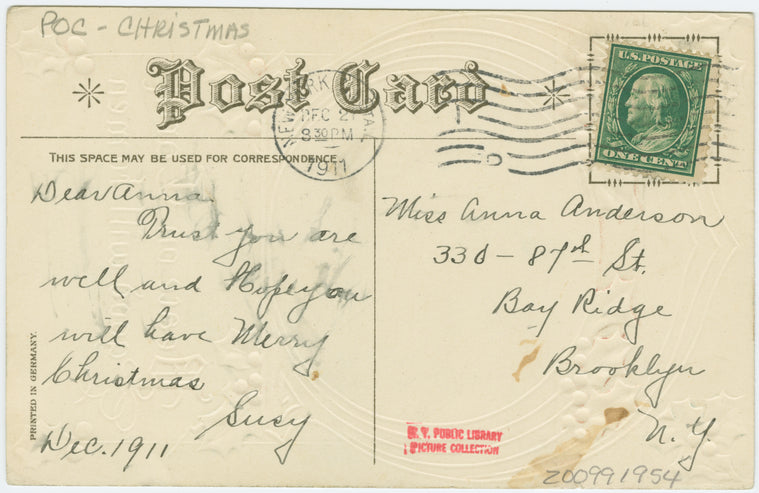 POC - CHRISTMAS
Post Card
U.S. POSTAGE
ONE CENT
NEW YORK, STA.
DEC 2
8 30 PM
1911
THIS SPACE MAY BE USED FOR CORRESPONDENCE.
Dear Anna
Trust you are
well and Hope you
will have Merry
Christmas
Susy
Dec. 1911
Miss Anna Anderson
330 - 87th St.
Bay Ridge
Brooklyn
N.Y.
PRINTED IN GERMANY.
N. Y. PUBLIC LIBRARY
PICTURE COLLECTION
Z00991954